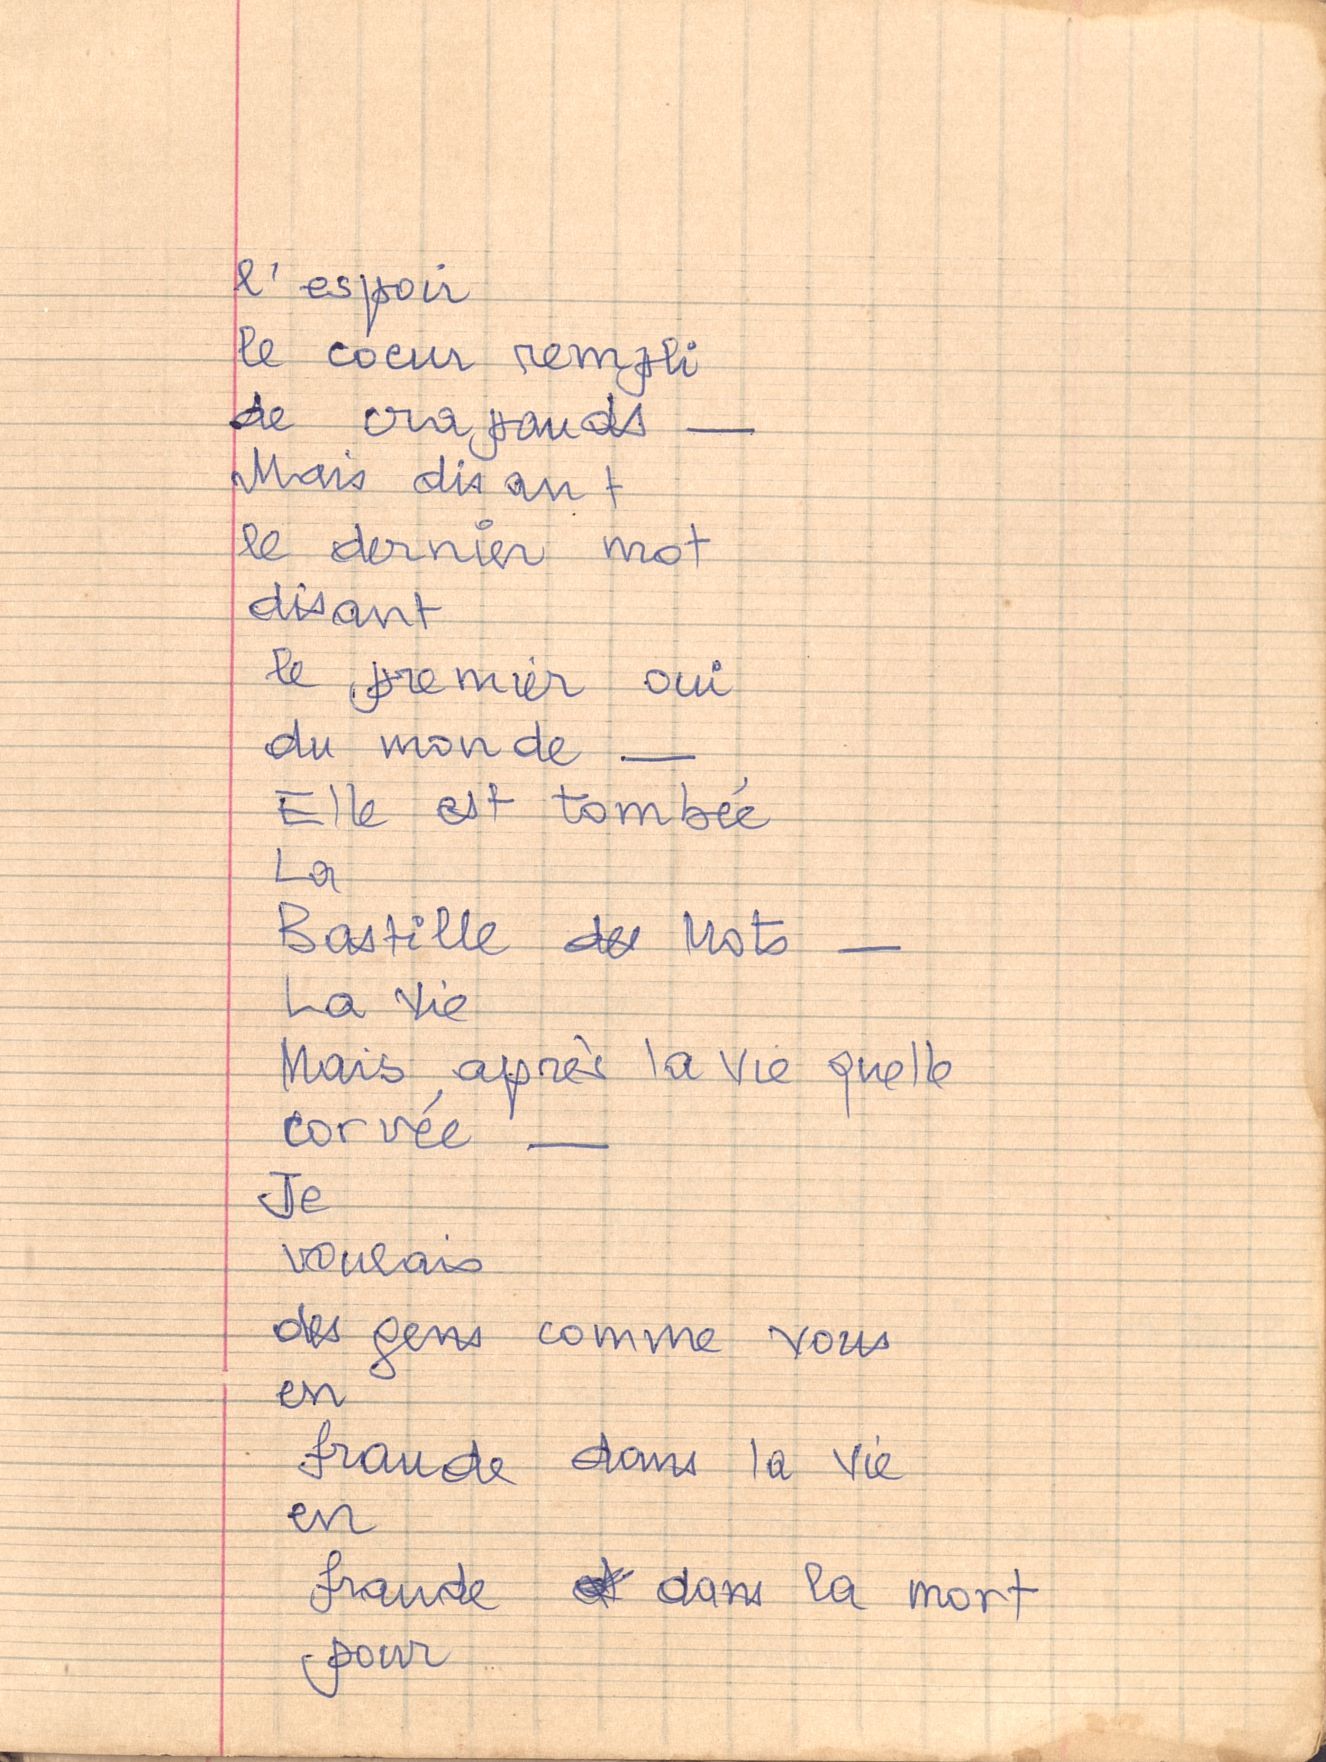 l'espoir
le coeur rempli
de crapauds —
Mais disant
le dernier mot
disant
le premier oui
du monde —
Elle est tombée
La
Bastille des Mots —
La vie
Mais après la vie quelle
corvée —
Je
voulais
des gens comme vous
en
fraude dans la vie
en
fraude dans la mort
pour